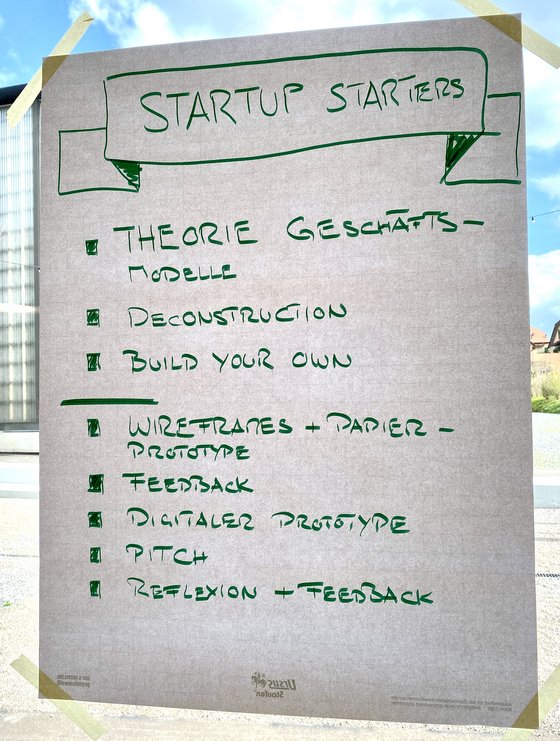 STARTUP STARTERS
THEORIE GESCHÄFTS-
MODELLE
DECONSTRUCTION
BUILD YOUR OWN
WIREFRAMES + PAPIER-
PROTOTYPE
FEEDBACK
DIGITALER PROTOTYPE
PITCH
REFLEXION + FEEDBACK
Ursus
Staufen